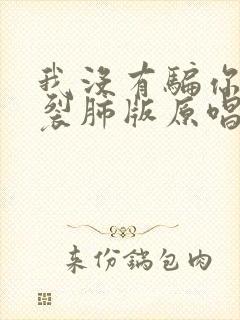 我没有骗你
裂肺版原唱
来份锅包肉